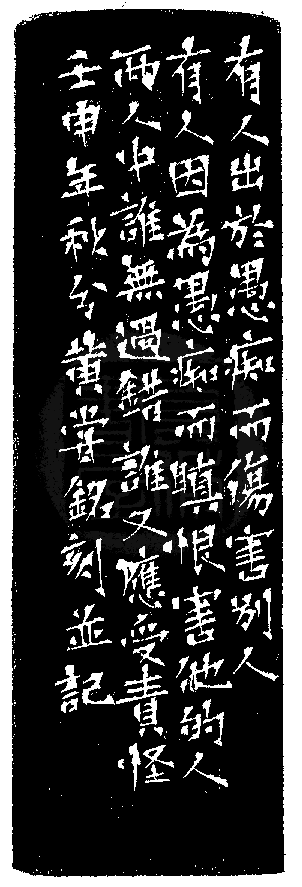 有人出於愚痴而傷害別人
有人因為愚痴而瞋恨害他的人
兩人中誰無過錯誰又應受責怪
壬申年秋分黃嘗銘刻並記